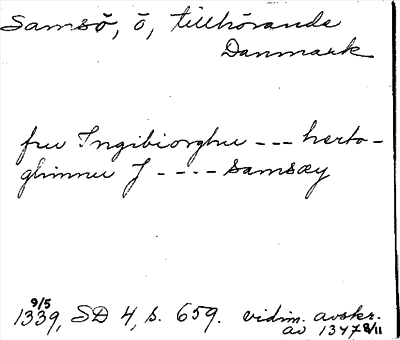 Samsö, ö, tillhörande
Danmark
fru Ingibiorghu --- herto-
ghinnu J ---- samsøy
9/5
1339, SD 4, s. 659. vidim. avskr.
av 1347 8/11